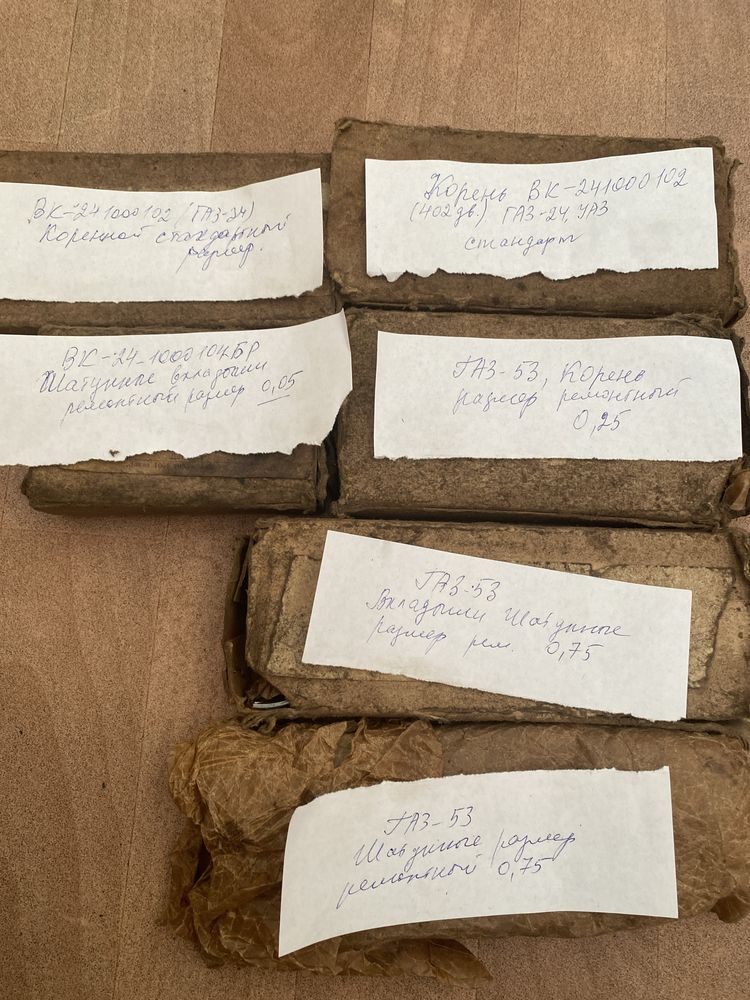 ВК-241000102 (ГАЗ-24)
Коренной стандартный
размер.
Корень ВК-241000102
(402дв.) ГАЗ-24, УАЗ
стандарт
ВК-24-1000104БР
Шатунные вкладыши
ремонтный размер 0,05
ГАЗ-53, Корень
размер ремонтный
0,25
ГАЗ-53
Вкладыши Шатунные
размер рем. 0,75
ГАЗ-53
Шатунные размер
ремонтный 0,75